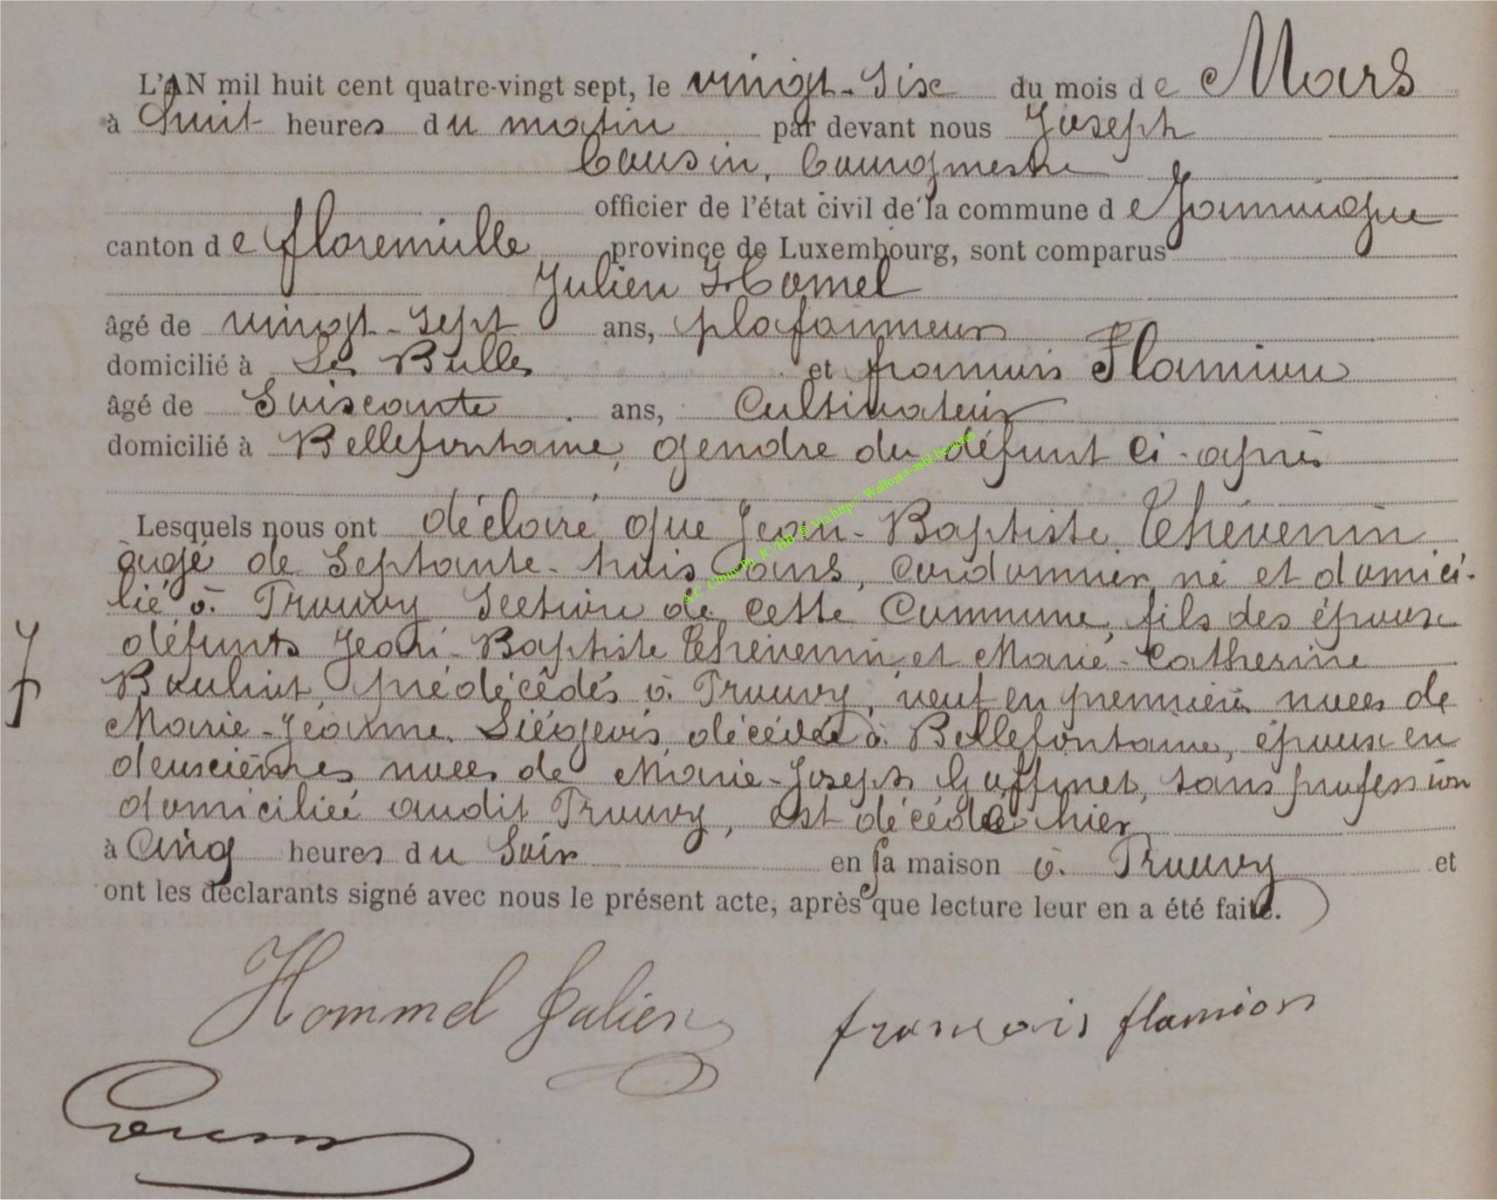 L'AN mil huit cent quatre-vingt sept, le vingt-six du mois de Mars
à huit heures du matin par devant nous Joseph
Cousin, bourgmestre
officier de l'état civil de la commune de Jamoigne
canton de florenville province de Luxembourg, sont comparus
Julien Hamel
âgé de vingt-sept ans, plafonneur
domicilié à Les Bulles et françois Flamion
âgé de Soixante ans, Cultivateur
domicilié à Bellefontaine, gendre du défunt ci-après
Lesquels nous ont déclaré que Jean-Baptiste Thévenin
âgé de Septante-huit ans, Cordonnier, né et domici-
lié à Prouvy Section de cette Commune, fils des époux
défunts Jean-Baptiste Thévenin et Marie-Catherine
prédécédés à Prouvy, veuf en premières noces de
Marie-Jeanne Liégeois, décédée à Bellefontaine, époux en
deuxièmes noces de Marie-Joseph Goffinet, sans profession
domiciliée audit Prouvy, est décédé hier
à Cinq heures du Soir en sa maison à Prouvy et
ont les déclarants signé avec nous le présent acte, après que lecture leur en a été faite.
Hommel Julien françois flamion
Cousin